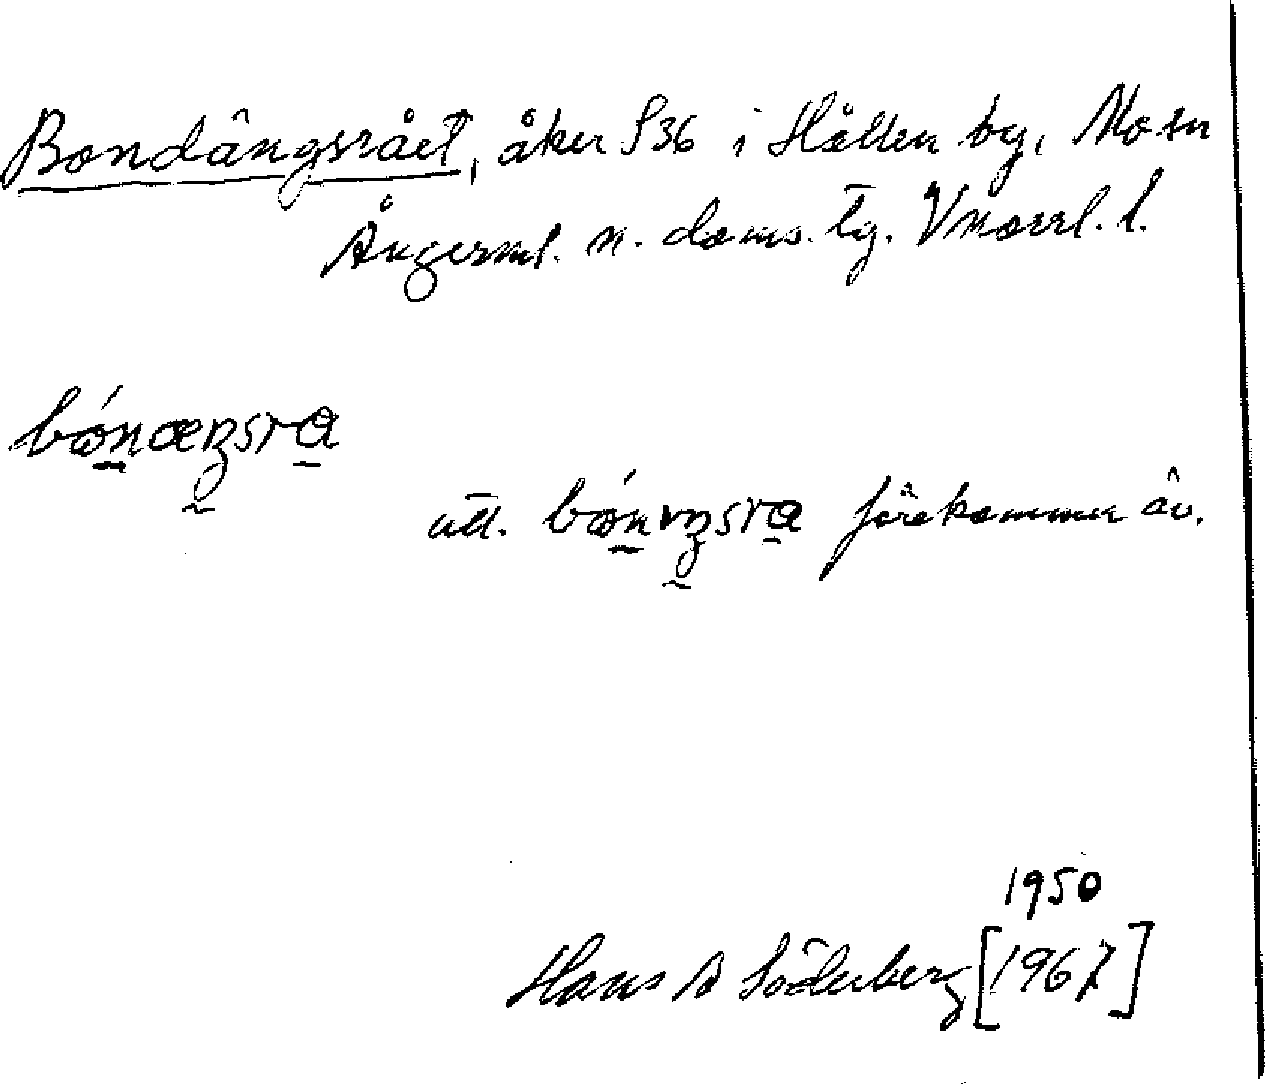 Bondängsrået, åker S36 i Hållen by, Mo sn
Ångerml. n. doms. tg. Vnorrl. l.
bónæŋsra
utt. bónıŋsra förekommer äv.
1950
Hans A Söderberg [1967]